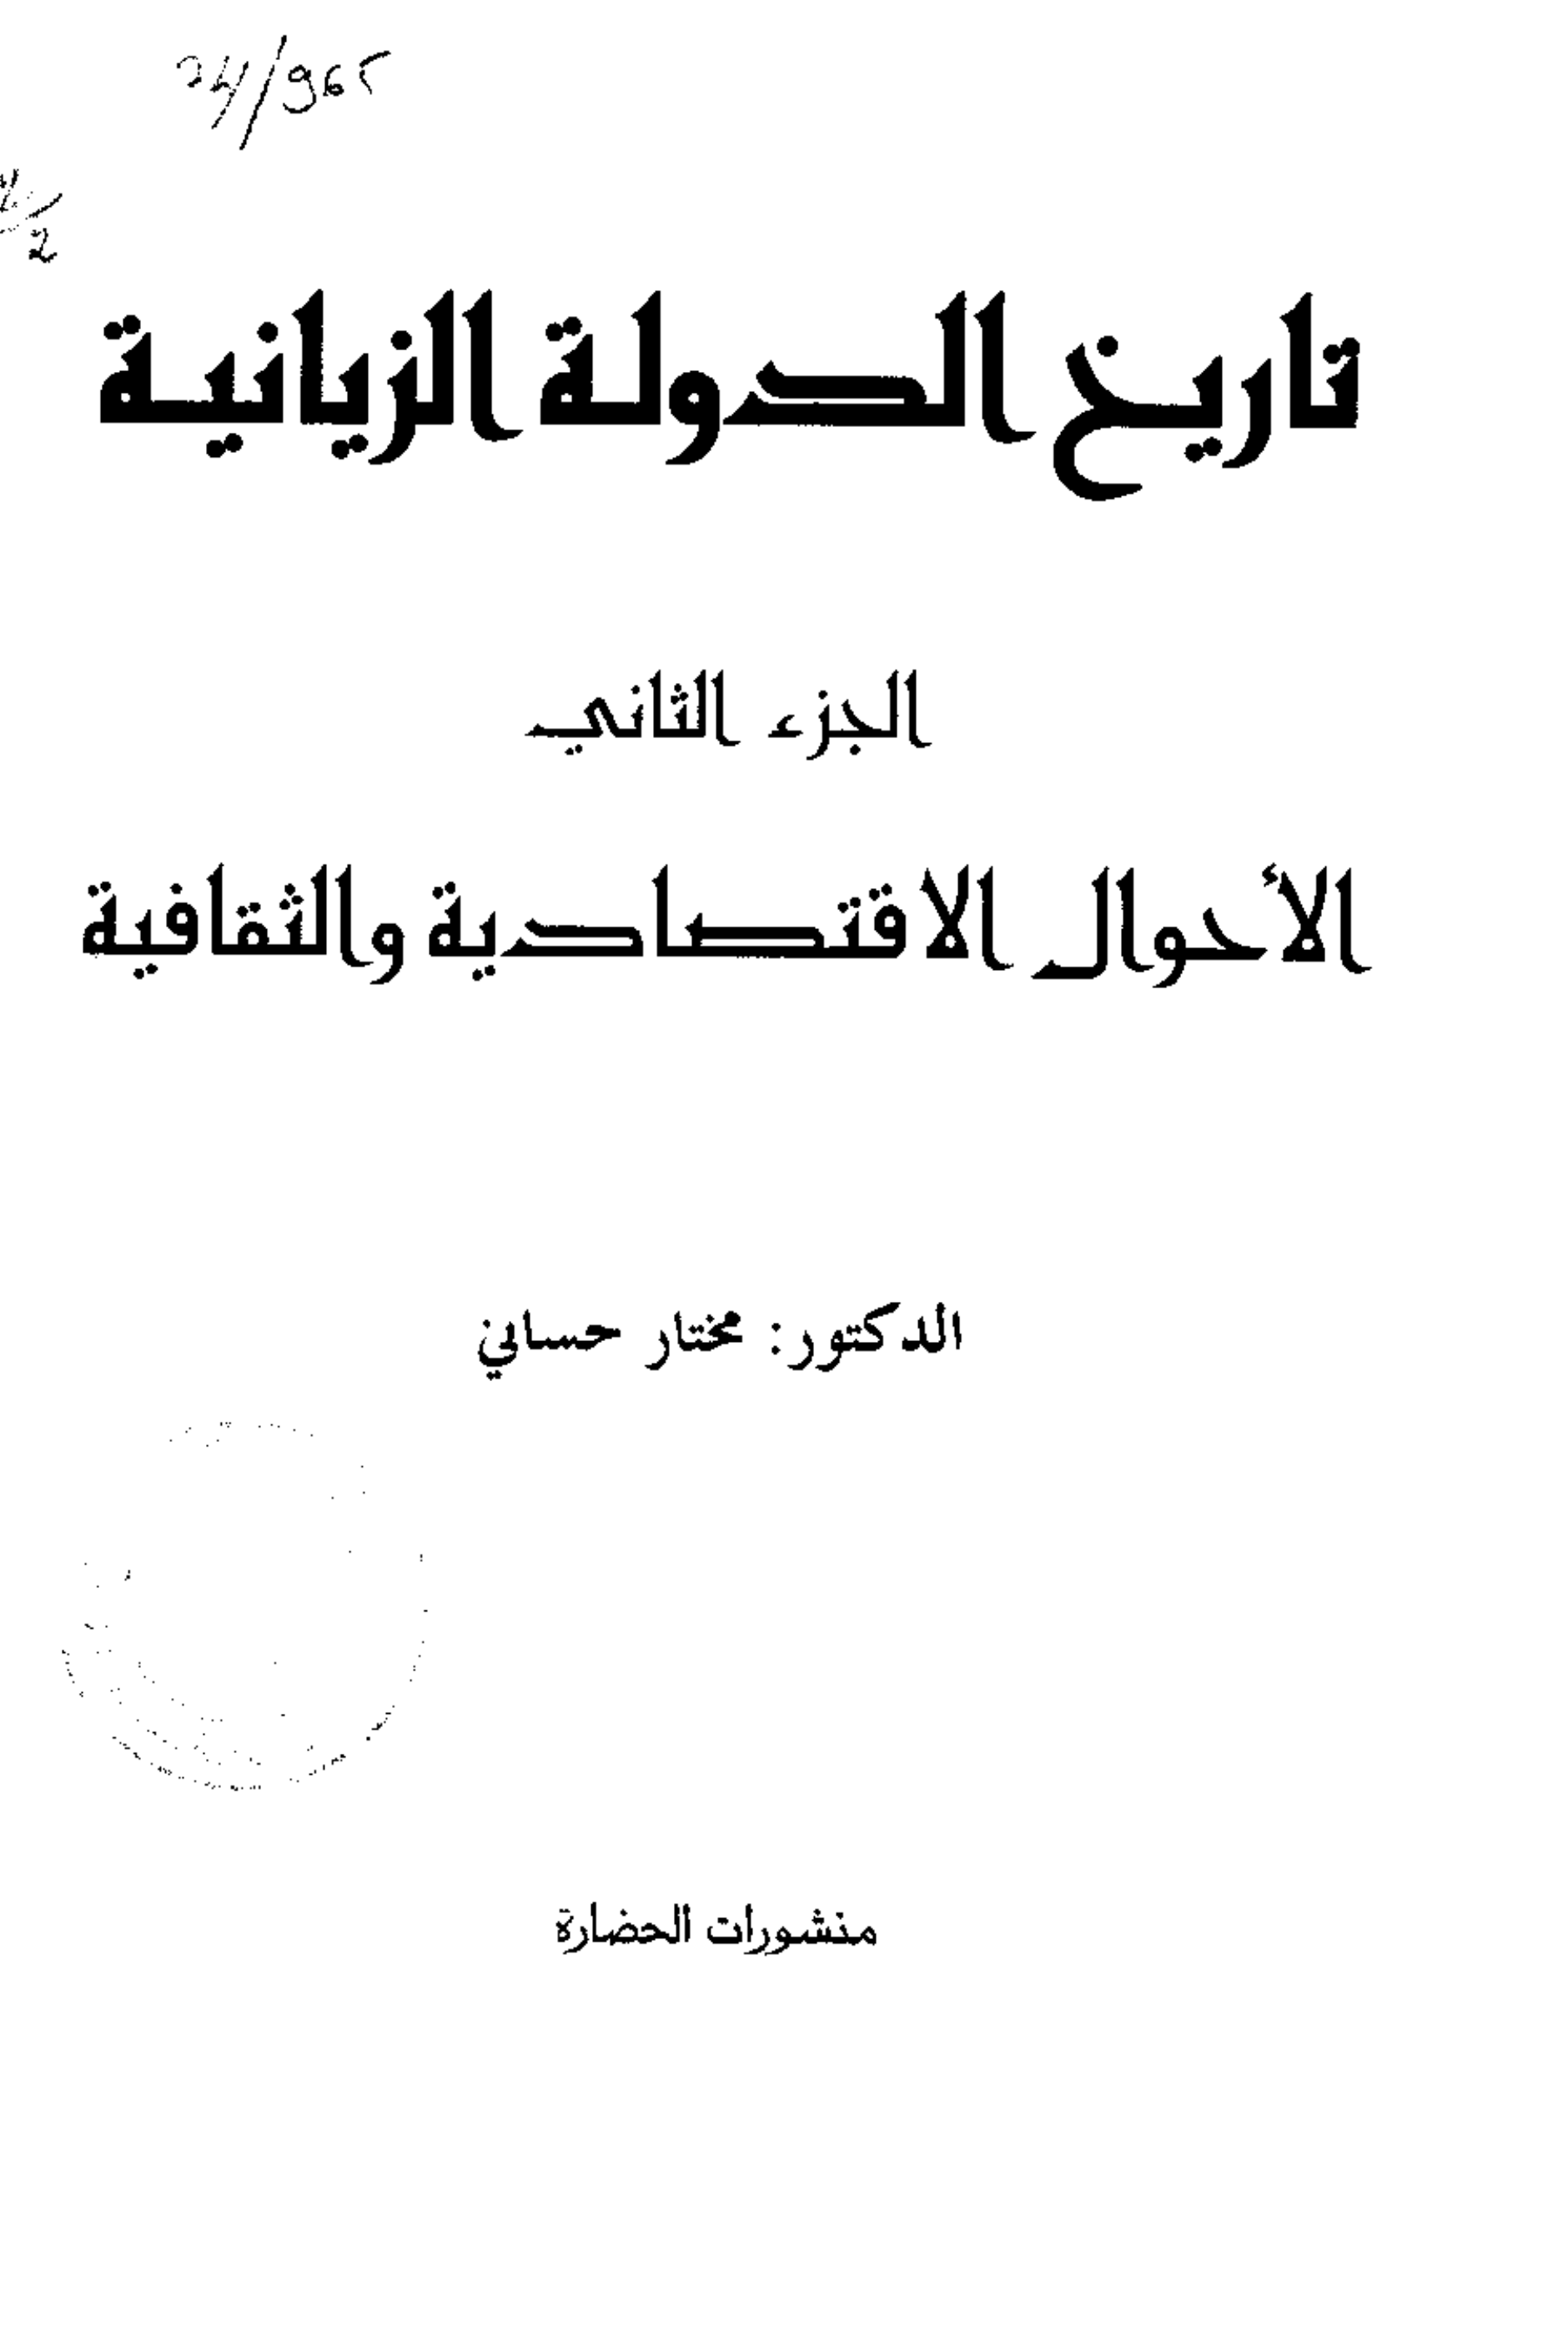 تاريخ الدولة الزيانية
الجزء الثاني
الأحوال الاقتصادية والثقافية
الدكتور: مختار حساني
منشورات الحضارة